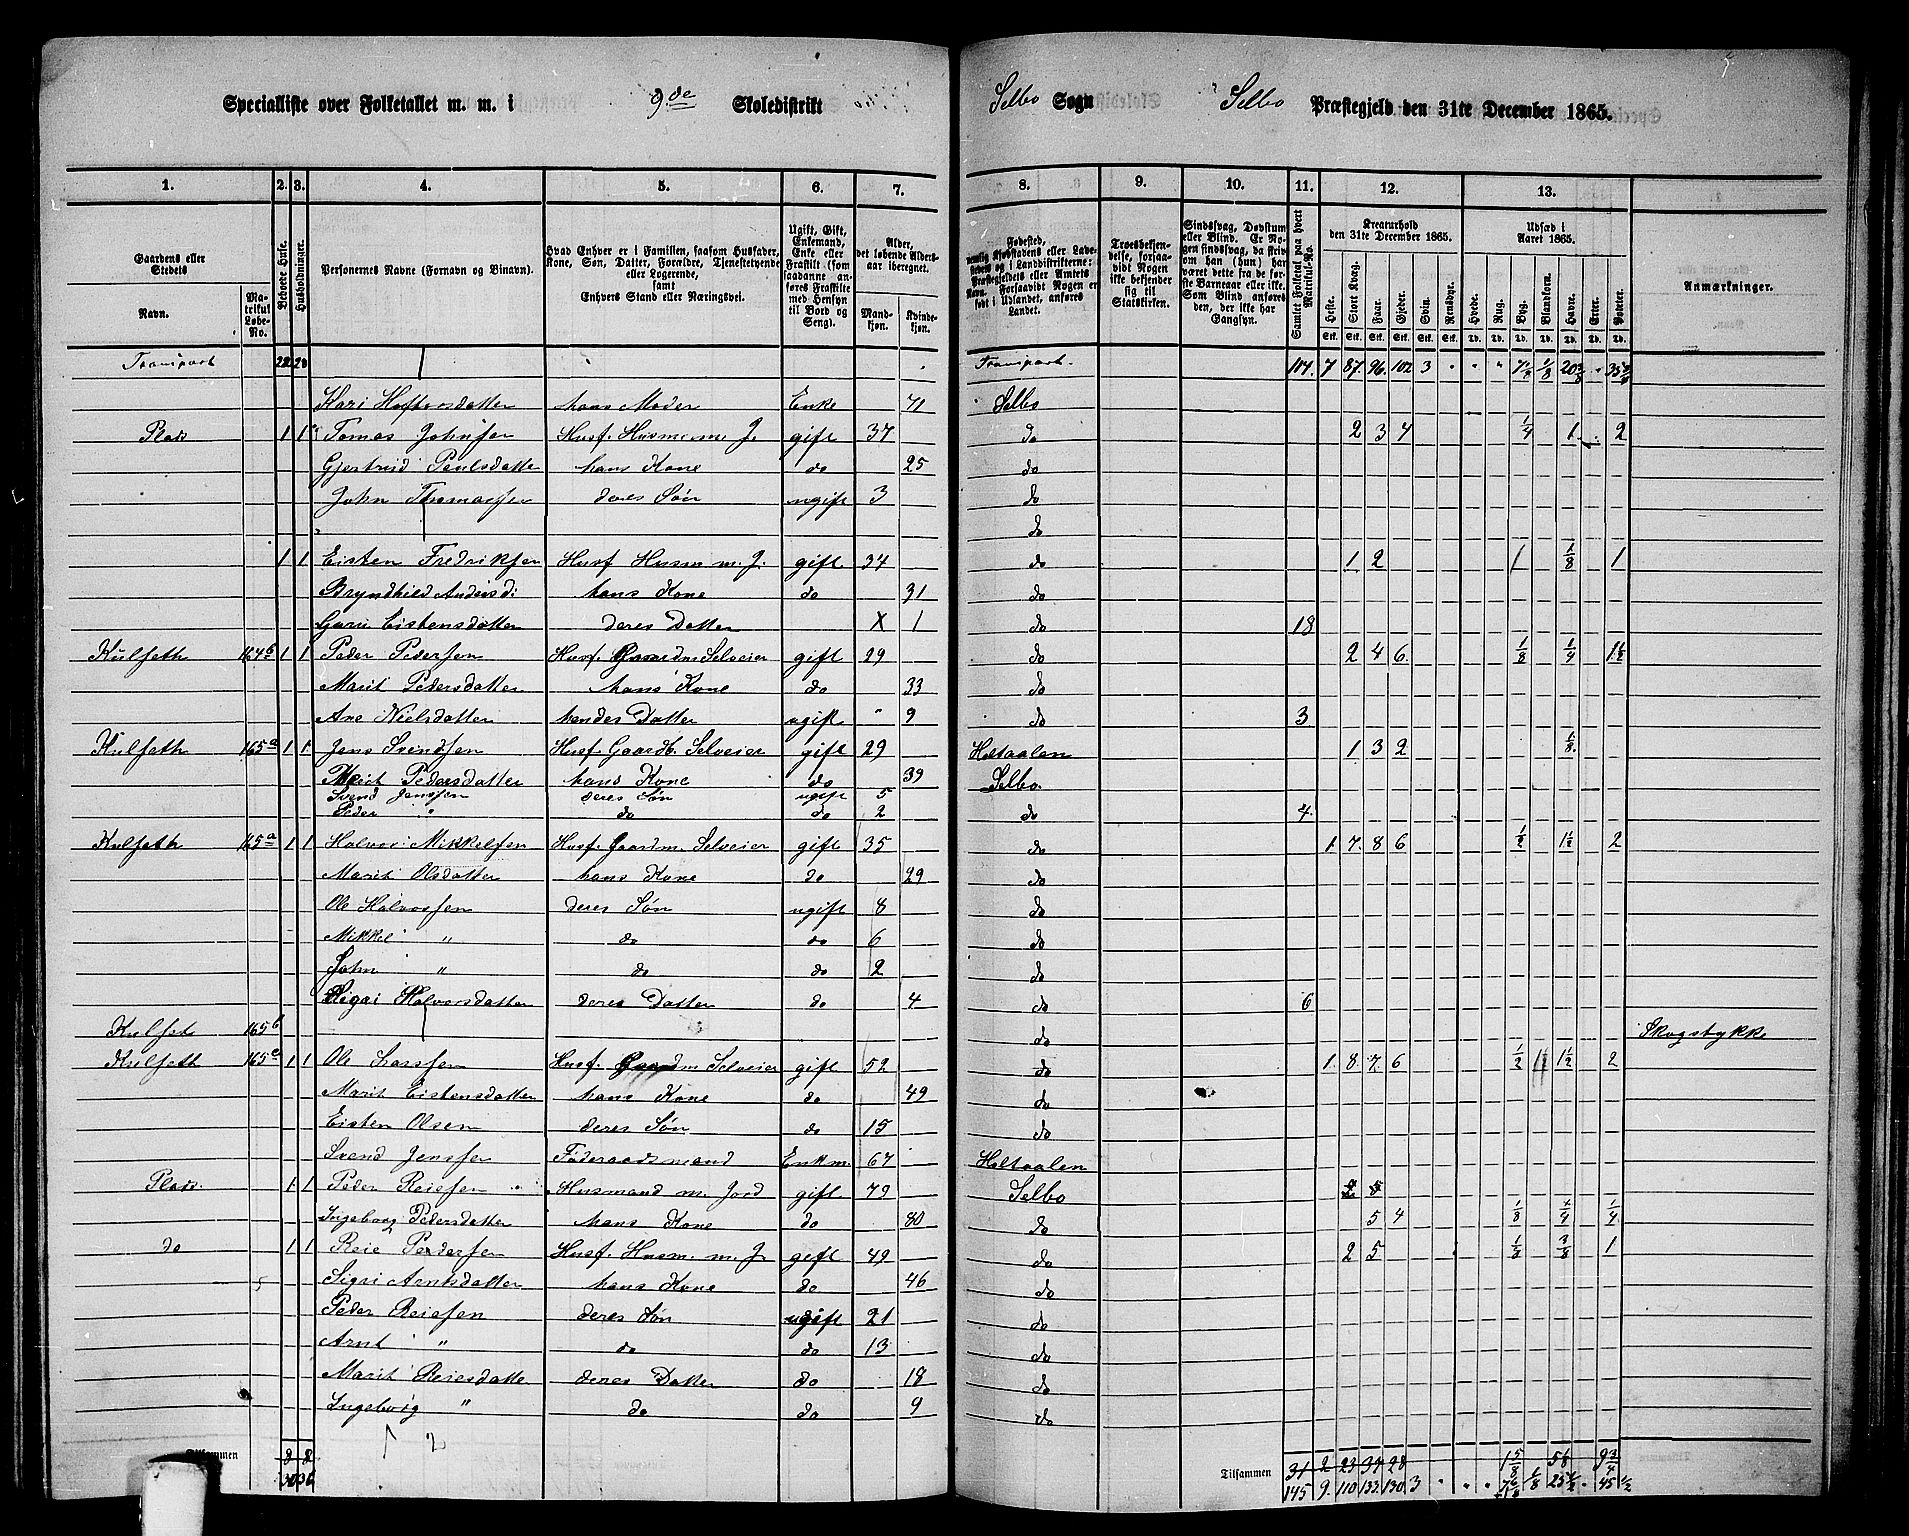 Specialliste over Folketallet m. m. i 9de Skoledistrikt Selbo Sogn Selbo Præstegjeld den 31te December 1865.
1. 2. 3. 4. 5. 6. 7. 8. 9. 10. 11. 12. 13.
Gaardens eller Stedets Navn. Matrikul Løbe-No. Beboede Huse. Husholdninger. Personernes Navne (Fornavn og Binavn). Hvad Enhver er i Familien, saasom Husfader, Kone, Søn, Datter, Forældre, Tjenestetyende eller Logerende, samt Enhvers Stand eller Næringsvei. Ugift, Gift, Enkemand, Enke eller Fraskilt (som saadanne anføres Fraskilte med Hensyn til Bord og Seng). Alder, det løbende Aldersaar iberegnet. Mandkjøn. Kvindekjøn.
Anmærkninger.
Transport 22 23 Transport. 104. 7 87. 96. 102 3 7 1/2 1/8 20 3/8 35 3/4
Kari Haftorsdatter hans Moder Enke 71 Selbo
Plads 1 1 Tomas Johnsen Husf. Husm. m. J. gift 37 do 2 3 4 1/4 1 2
Gjertrud Paulsdatter hans Kone do 25 do
John Thomassen deres Søn ugift 3 do
do
1 1 Eisten Fredriksen Husf Husm m. J. gift 34 do 1 2 1 1/8 1
Bryndhild Anders d: hans Kone do 31 do
Guru Eistensdatter deres Datter X 1 do 18
Kulseth 164b 1 1 Peder Pedersen Husf. Gaardm Selveier gift 29 do 2 4 6. 1/8 1/4 1 1/2
Marit Pedersdatter hans Kone do 33 do
Ane Nielsdatter hendes Datter ugift " 9 do 3
Kulseth 165a 1 1 Jens Svendsen Husf. Gaardb. Selveier gift 29 Holtaalen 1 3 2 1/8
Marit Pedersdatter hans Kone do 39 Selbo.
Svend Jenssen deres Søn ugift 5
Peder " do do 2 do 4
Kulseth 165a 1 1 Halvor Mikkelsen Husf. Gaardm. Selveier gift 35 do 1. 7. 8 6 1/2 1 1/2 2
Marit Olsdatter hans Kone do 29 do
Ole Halvorsen deres Søn ugift 8 do
Mikkel " do do 6 do
John " do do 2 do
Sigri Halvorsdatter deres Datter do 4 do 6
Kulset 165b do Skogstykke
Kulseth 165a 1 1 Ole Larssen Husf. Gaardm Selveier gift 52 do 1. 8. 7. 6 1/2 1 1/2 2
Marit Eistensdatter hans Kone do 49 do
Eisten Olsen deres Søn do 15 do
Svend Jensen Føderaadsmand Enkm. 67 Holtaalen
Plads. 1 1 Peder Reiesen Husmand m. Jord gift 79 Selbo
Ingeborg Pedersdatter hans Kone do 80 do 5 4 1/8 1/4 1/4
do 1 1 Reie Pedersen Husf. Husm. m. J gift 49 do 2 5 1/8 3/8 1
Sigri Arntsdatter hans Kone do 46 do
Peder Reiesen deres Søn ugift 21 do
Arnt " do do 13 do
Marit Reiesdatter deres Datter do 18 do
Ingeborg " do do 9 do
Tilsammen 8 8 Tilsammen 31 2 23 37 28
145 9. 110 133. 130 3